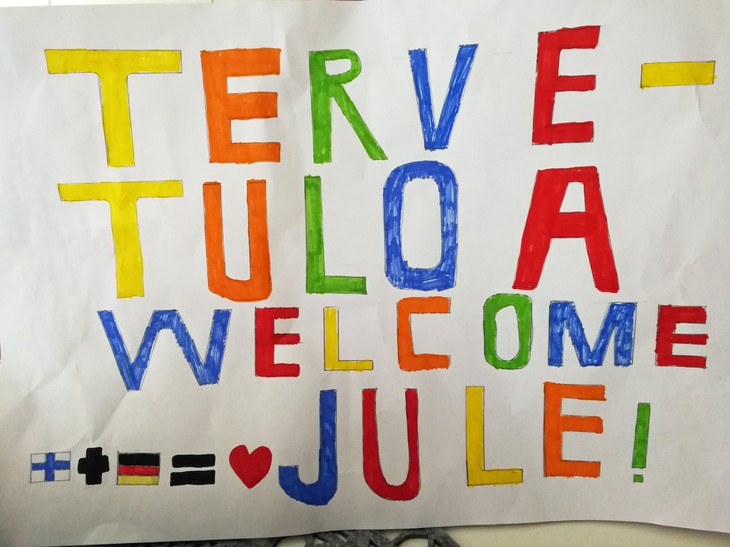 TERVE-
TULOA
WELCOME
+ = JULE!